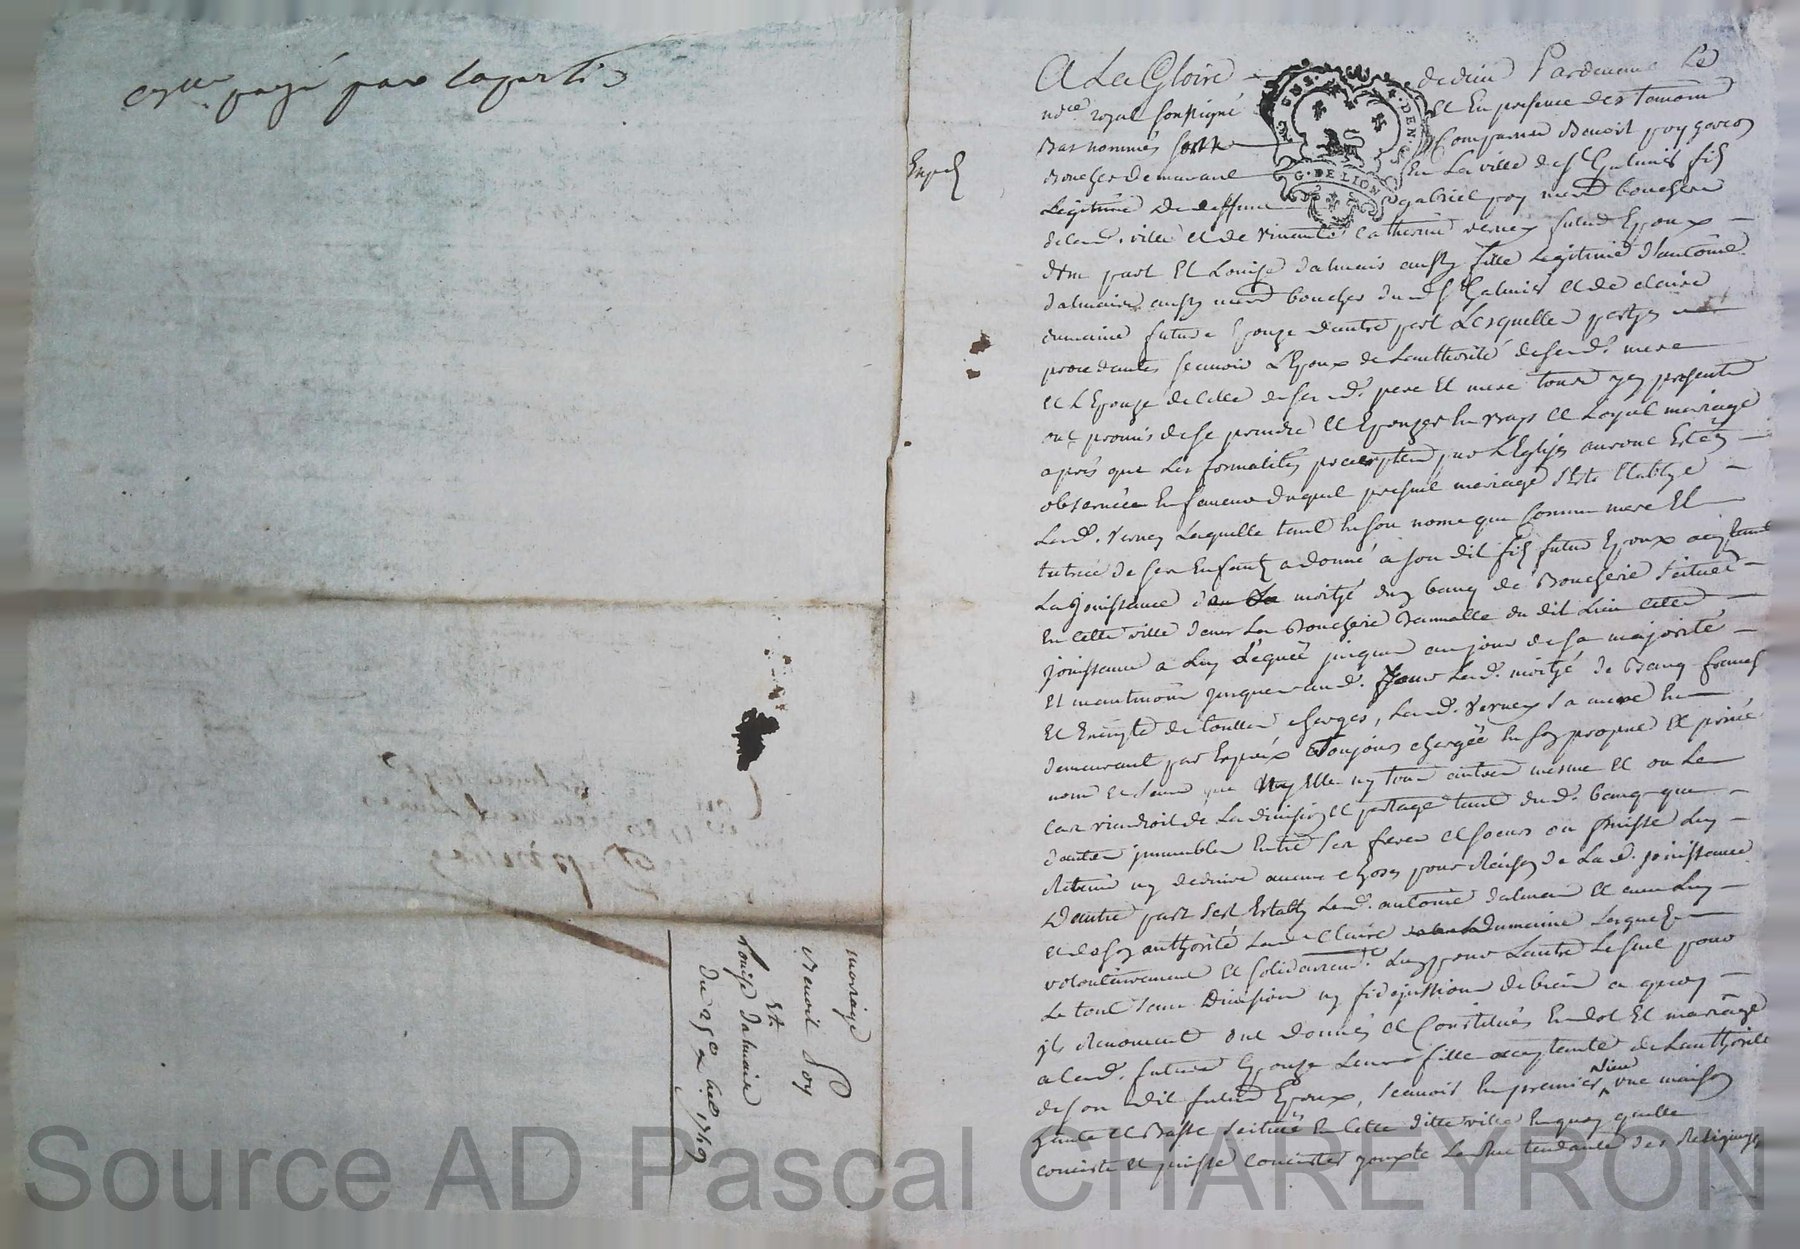 payé par laparti
Expedi
A La Gloire de dieu Pardevant Le
no.re royal soussigné Et En presence des temoins
Bas nommés sont Comparus Benoit poy garcon
Boucher demeurant En La ville de st Galmier fils
Legitime De deffunt gabriel poy md boucher
delad. ville et de vivante Catherine verney futur Epoux
d'une part Et Louise dalmais aussy fille Legitime d'antoine
dalmais aussy md boucher dud St Galmier et de claire
dumaine future Epouze dautre part Lesquelles partyes
procedantes scavoir L'Epoux de Lauthorité de sad. mere
et L'Epouze de celle de ses d. pere Et mere tous icy presents
ont promis de se prendre et Epouzer En vray et Loyal mariage
aprés que Les formalités prescriptes par L'Eglize auront Estés
observées En faveur duquel present mariage s'est Etablye
Lad. verney Laquelle tant En son nom que Comme mere Et
tutrice de ses Enfants a donné a son dit fils futur Epoux acceptant
La Jouissance de La moityé d'un banq de Boucherie scitué
En cette ville dans La Boucherie Bannalle du dit Lieu cette
Jouissance a Luy Leguée jusques au jour de sa majorité
Et maintenir jusques aud. Jour Lad. moityé de Banq franche
Et Exempte de touttes charges, Lad. verney sa mere En
demeurant par Exprés Toujours chargée En son propre Et privé
nom et sans que Ny Elle ny tous autres mesme et ou Le
cas viendroit de La division et partage tant dud. banq que
d'autres immeubles Entre ses freres et soeurs on puisse Luy
Retenir ny deduire aucune chose pour Raison de Lad. jouissance
D'autre part s'est Establi Led. antoine dalmais et avec Luy
et de son authorité Lad. Claire Dumaine Lesquels
volontairement et solidairem.t Lun pour Lautre Le seul pour
Le tout sans Division ny fidejussion de bien a quoy
ils Renoncent ont donnés et Constitués En dot Et mariage
a Lad. future Epouze Leur fille acceptante de Lauthorité
de son dit futur Epoux, scavoir En premier Lieu une maison
haute et Basse scituée En cette ditte ville En quoy qu'elle
conciste et puisse concister jouxte La Rue tendante des Religieuses
mariage
Benoit Poy
Et
Louise Dalmais
Du 25e
G. DE LION